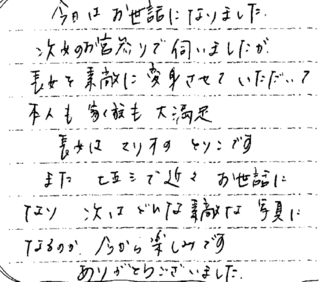 今日はお世話になりました.
次女のお宮参りで伺いましたが
長女を素敵に変身させていただいて
本人も家族も大満足
長女は とりこです
また 七五三で近々 お世話に
なり 次は どんな素敵な 写真に
なるのか 今から楽しみです
ありがとうございました.